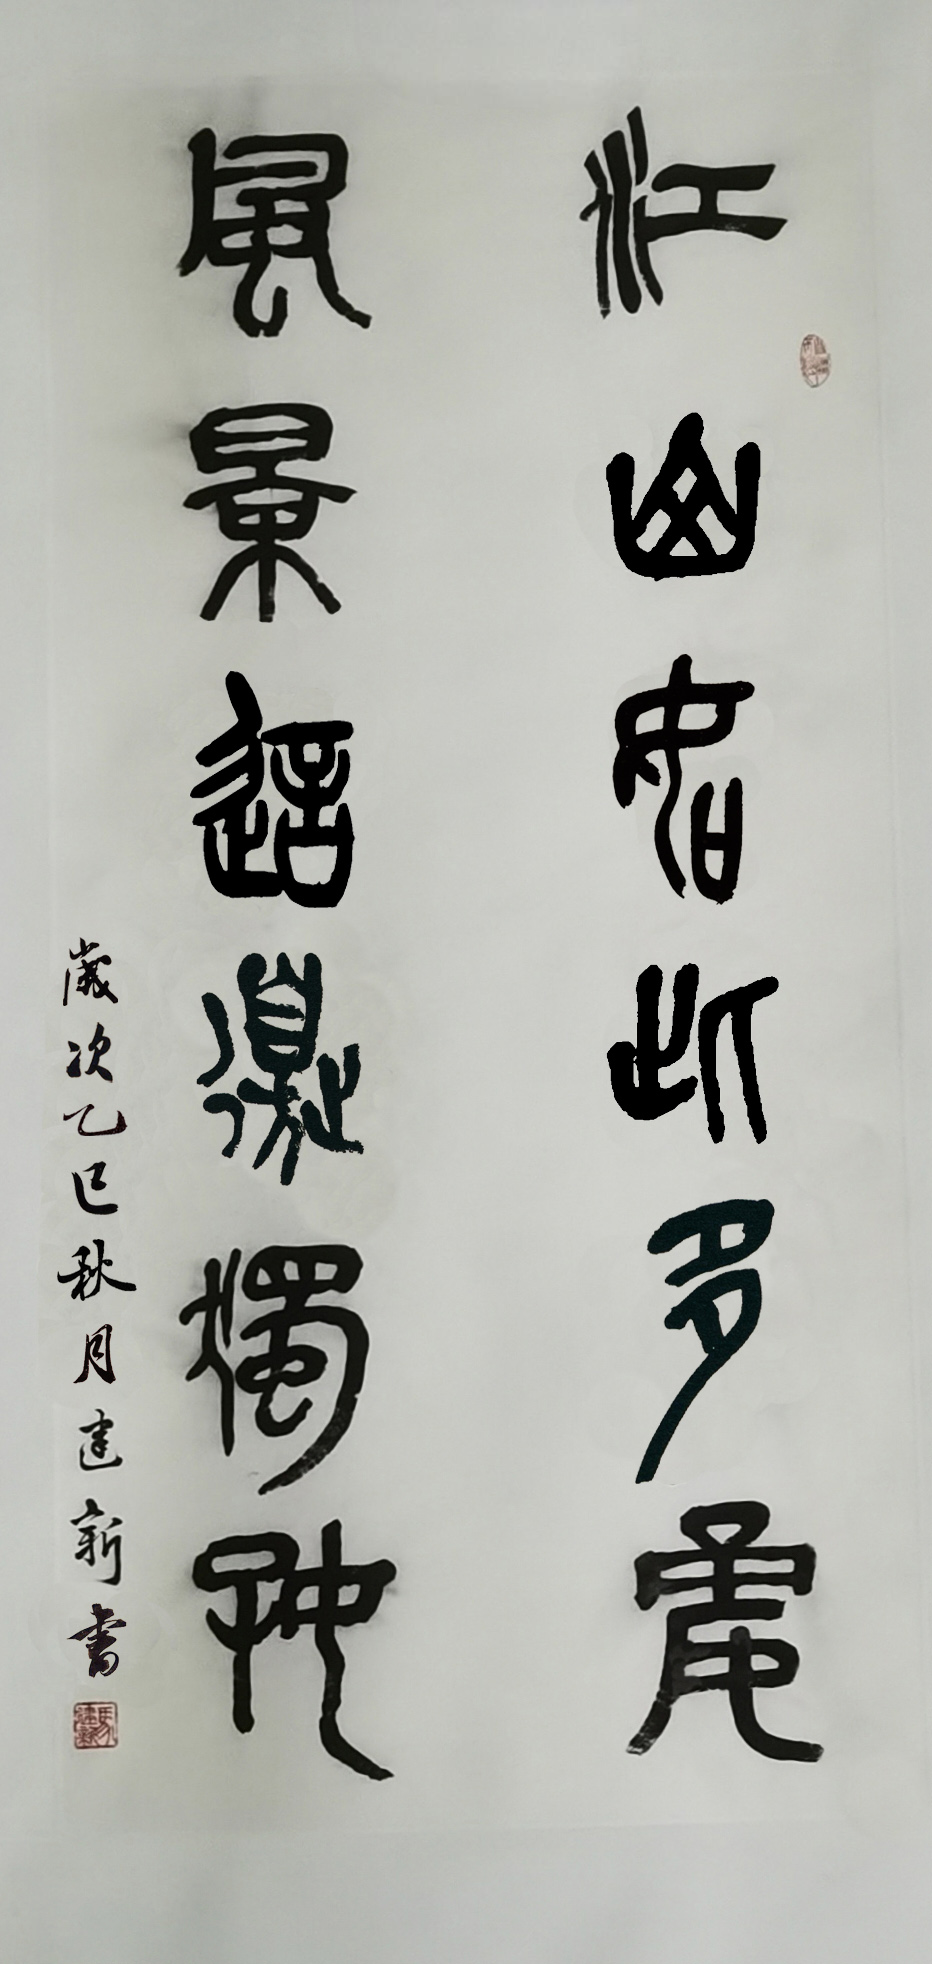 江山如此多嬌
風景這邊獨好
歲次乙巳秋月建新書